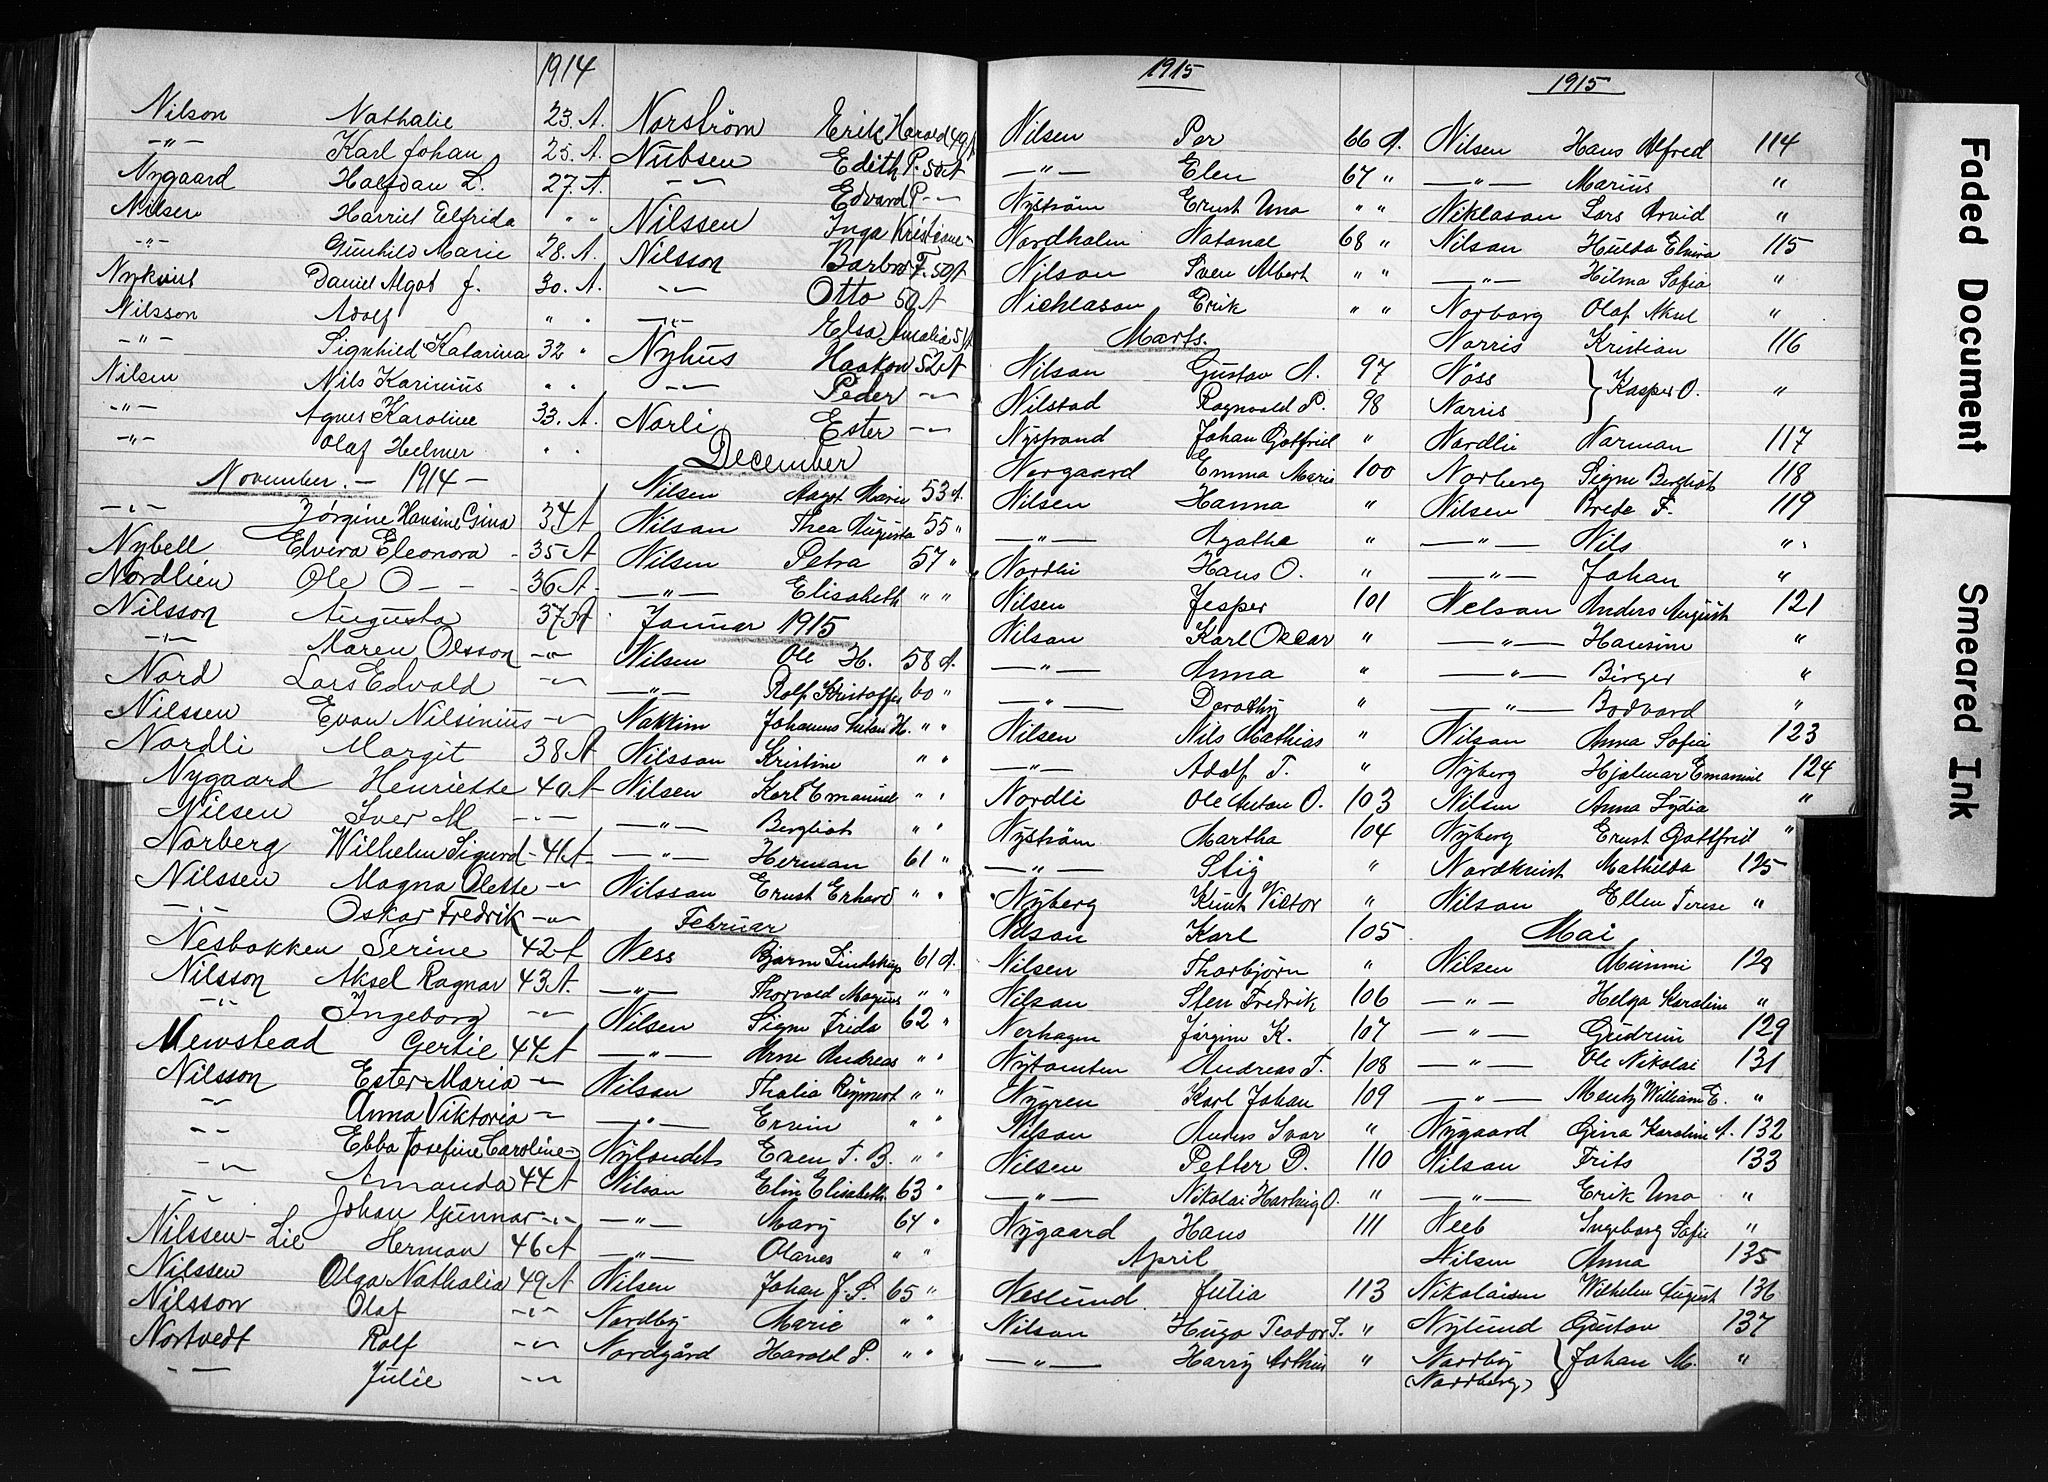 1914
Nilson Nathalie 23. A.
-"- Karl Johan 25. A.
Nygaard Halfdan L. 27. A.
Nilsen Harriet Elfrida " "
-"- Gunhild Marie 28. A.
Nykvist Daniel Algot J. 30. A.
Nilsson Adolf " "
-"- Signhild Katarina 32 "
Nilsen Nils Karinius " "
-"- Agnes Karoline 33. A.
-"- Olaf Helmer " "
November. - 1914 -
-"- Jörgine Hansine Gina 34 A
Nybell Elvera Eleonora - 35 A
Nordlien Ole O - - 36 A
Nilsson Augusta 37 A
-"- Maren Olsson -"-
Nord Lars Edvald -"-
Nilssen Evan Nilsinius -"-
Nordli Margit 38 A
Nygaard Henriette 40 A
Nilsen Iver M -"-
Norberg Wilhelm Sigurd - 41 A
Nilssen Magna Olette -"-
-"- Oskar Fredrik -"-
Nesbakken Serine 42 A
Nilsson Aksel Ragnar 43 A.
-"- Ingeborg -"-
Mewstead Gertie 44 A
Nilsson Ester Maria -"-
-"- Anna Viktoria -"-
-"- Ebba Josefine Caroline -"-
-"- Amanda 44 A
-"- Johan Gunnar -"-
Nilssen - Lie Herman 46 A
Nilssen Olga Nathalia 49 A
Nilsson Olaf -"-
Nortvedt Rolf -"-
-"- Julie -"-
Norström Erik Harald 49 A
Nubsen Edith P. 50 A
-"- Edvard P -"-
Nilssen Inga Kristine -
Nilsson Barbro F. 50 A
-"- Otto 50 A
-"- Elsa Amalia 51 A
Nyhus Haakon 52 A
-"- Peder -"-
Norli Ester -"-
December
Nilsen Aagot Marie 53 A.
Nilsan Thea Augusta 55 "
Nilsen Petra 57 "
-"- Elisabeth " "
Januar 1915
Nilsen Ole H. 58 A.
-"- Rolf Kristoffer 60 "
Nakkim Johannes Anton H. " "
Nilsson Kristine " "
Nilsen Karl Emanuel " "
-"- Bergliot " "
-"- Herman 61 "
Nilsson Ernst Erhard " "
Februar
Ness Bjarne Lindskup 61 A.
-"- Thorvald Magnus " "
Nilsen Signe Frida 62 "
-"- Arne Andreas " "
Nilsan Thalia Reynert " "
-"- Ervin " "
Nylandet Even T. B. " "
Nilsan Elin Elisabeth 63 "
-"- Mary 64 "
-"- Olanes " "
Nilsen Johan J. S. 65 "
Nordby Marie " "
Nordgård Harald P. " "
1915
Nilsen Per 66 A.
-"- Elen 67 "
Nyström Ernst Uno " "
Nordholm Natanael 68 "
Nilson Sven Albert " "
Nichlasan Erik " "
Marts.
Nilsan Gustav A. 97
Nilstad Ragnvald P. 98
Nystrand Johan Gotfried "
Norgaard Emma Marie 100
Nilsen Hanna "
-"- Agathe "
Nordli Hans O. "
Nilsen Jesper 101
Nilsan Karl Oscar "
-"- Anna "
-"- Dorathy "
Nilsen Nils Mathias "
-"- Adolf T. "
Nordli Ole Anton O. 103
Nyström Martha 104
-"- Stig "
Nyberg Knut Victor "
Nilson Karl 105
Nilsen Thorbjörn "
Nilsan Sten Fredrik 106
Nerhagen Jörgine K. 107
Nytomten Andreas T. 108
Nygren Karl Johan 109
Nilsan Anders Ivar "
Nilsen Petter D. 110
-"- Nikolai Hartvig O. "
Nygaard Hans 111
April
Neslund Julia 113
Nilsan Hugo Teodor T. "
-"- Harry Arthur "
1915
Nilsen Hans Alfred 114
-"- Marius "
Niklasan Lars Arvid "
Nilsan Hulda Elvira 115
-"- Hilma Sofia "
Norborg Olaf Aksel "
Norris Kristian 116
Nöss } Kasper O. "
Norris
Nordlie Norman 117
Norberg Signe Bergliot 118
Nilsen Brede F. 119
-"- Nils "
-"- Johan "
Nelson Anders August 121
-"- Hansine "
-"- Birger "
-"- Bodvard "
Nilsan Anna Sofia 123
Nyberg Hjalmar Emanuel 124
Nilsen Anna Lydia "
Nyberg Ernst Gottfried "
Nordkvist Mathilda 125
Nilson Ellen Terese "
Mai
Nilsen Mimmi 128
-"- Helga Karoline "
-"- Gudrun 129
-"- Ole Nikolai 131
-"- Mentz William E. "
Nygaard Gina Karoline A. 132
Nilsan Frits 133
-"- Erik Uno "
Neeb Ingeborg Sofie "
Nilsen Anna 135
Nikolaisen Wilhelm August 136
Nylund Gustav 137
Nordby } Johan M. "
(Nordberg)
Faded Document
Smeared Ink